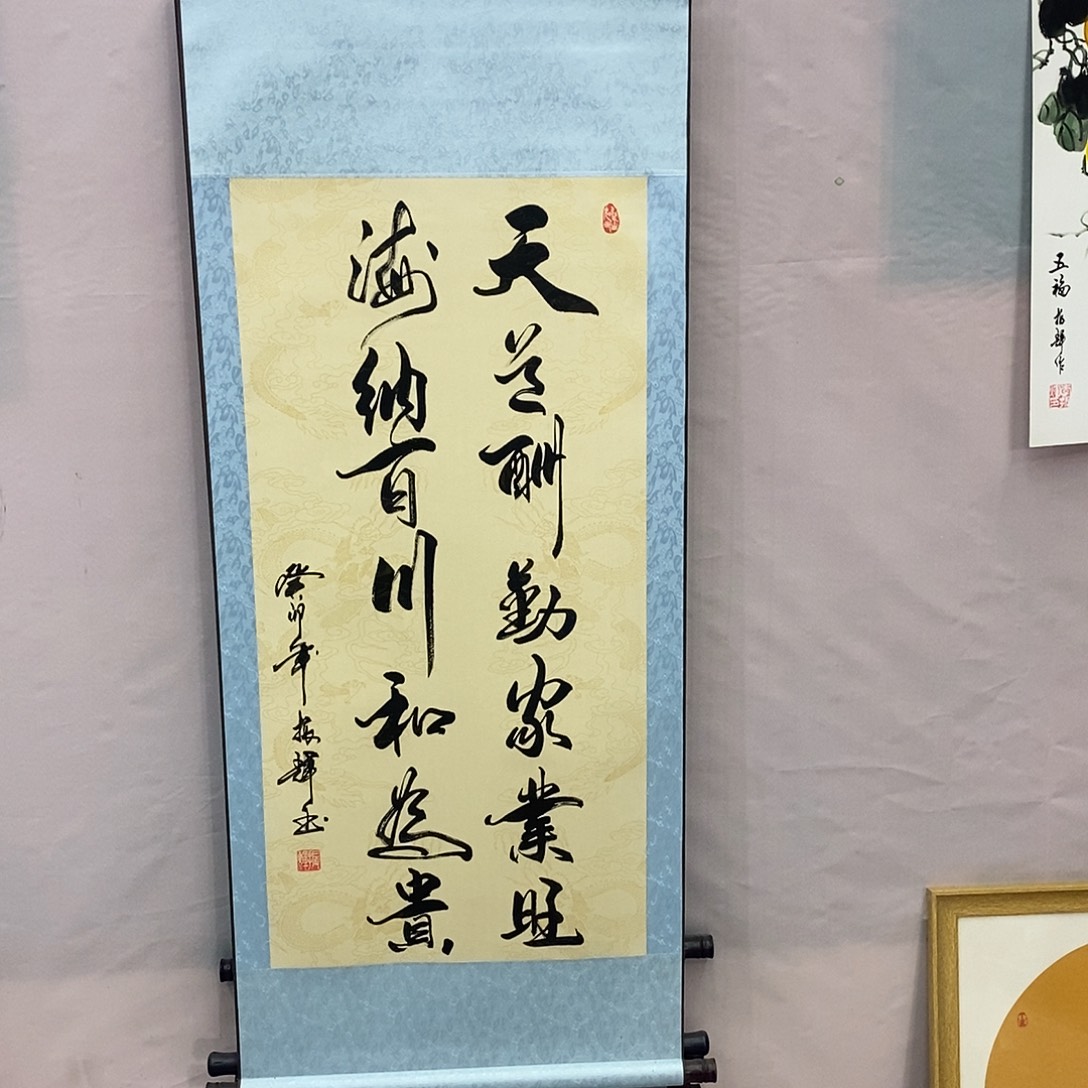 天道酬勤家業旺
海納百川和為貴
癸卯年振輝書
五福振輝作